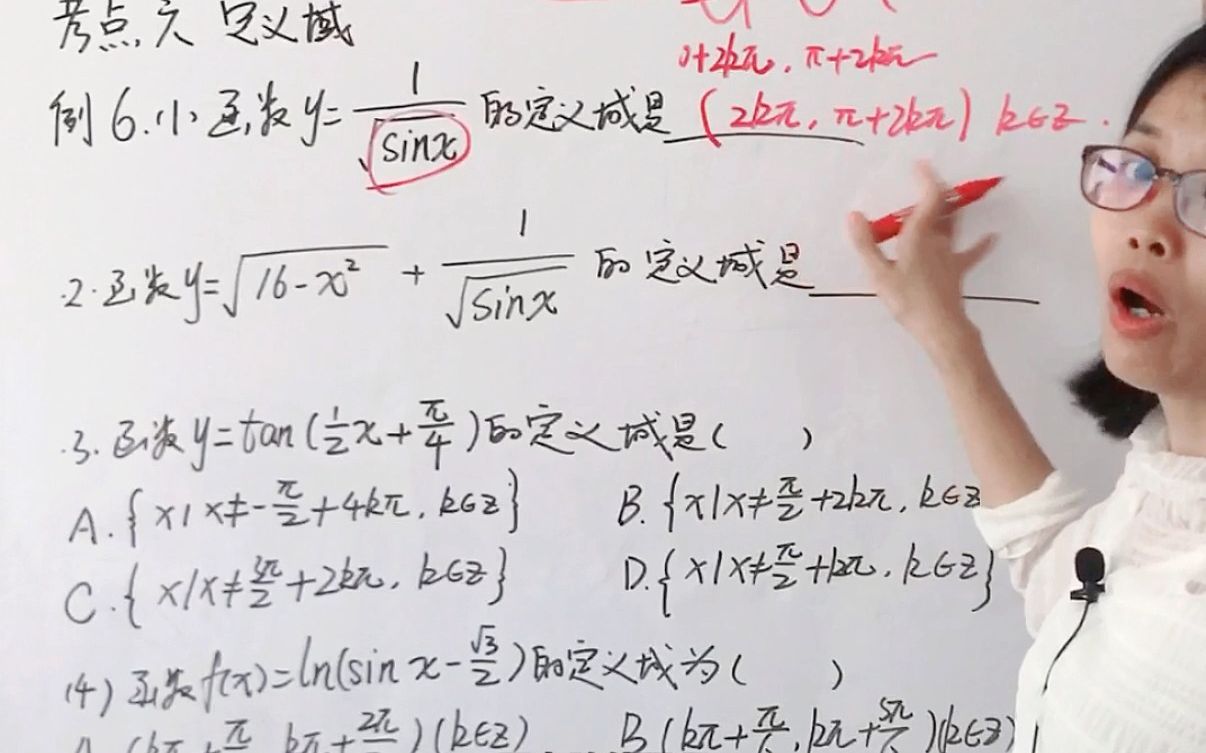 考点六 定义域
0+2kπ, π+2kπ
例6.(1)函数y=1/√sinx 的定义域是 (2kπ, π+2kπ) k∈Z.
.2.函数y=√16-x² + 1/√sinx 的定义域是
.3.函数y=tan(1/2x+π/4)的定义域是( )
A.{x|x≠-π/2+4kπ, k∈Z} B.{x|x≠π/2+2kπ, k∈Z
C.{x|x≠3π/2+2kπ, k∈Z} D.{x|x≠π/2+kπ, k∈Z}
(4)函数f(x)=ln(sin x-√3/2)的定义域为( )
kπ+2π/ )(k∈Z) B(kπ+π/ , kπ+5π/ )(k∈Z)